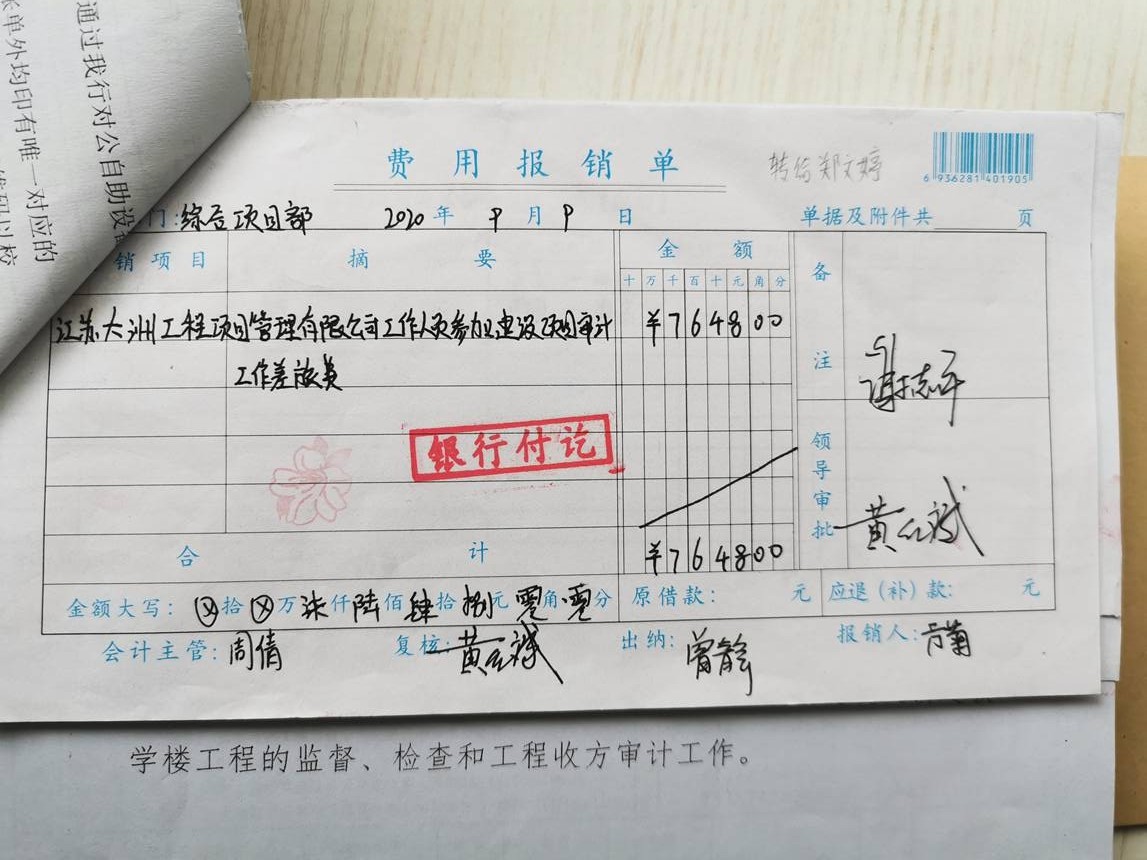 通过我行对公自助设
单外均印有唯一对应的
费用报销单
转给郑文婷
6 936281 401905
门:综合项目部 2020年9月9日 单据及附件共 页
销项目 摘要 金额 备注
十万千百十元角分
江苏大洲工程项目管理有限公司工作人员参加建设项目审计 ¥764800
工作差旅费
银行付讫
领导审批
合计 ¥764800
金额大写: ⊗拾⊗万柒仟陆佰肆拾捌元零角零分 原借款: 元 应退(补)款: 元
会计主管:周倩 复核: 出纳:曾静 报销人:
学楼工程的监督、检查和工程收方审计工作。